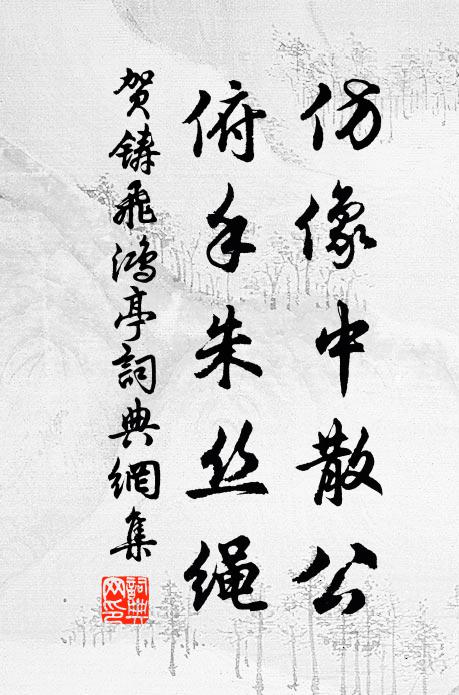 仿像中散公
俯手朱丝绳
贺铸飛鴻亭詞典網集
詞典网印